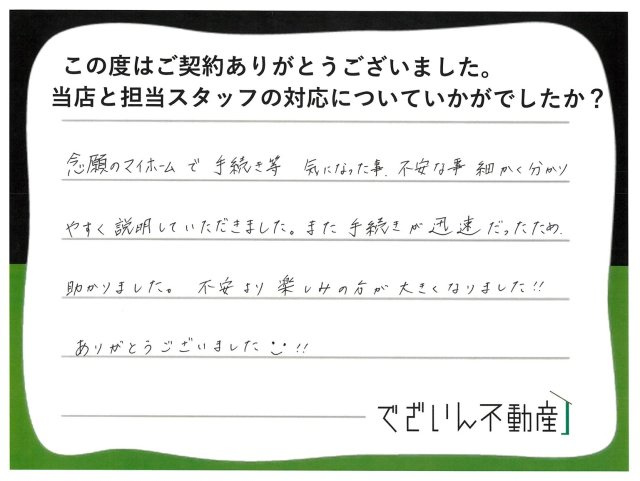 この度はご契約ありがとうございました。
当店と担当スタッフの対応についていかがでしたか？
念願のマイホームで 手続き等 気になった事、不安な事 細かく分かり
やすく説明していただきました。また 手続きが迅速だったため、
助かりました。 不安より楽しみの方が大きくなりました!!
ありがとうございました!!
でざいん不動産